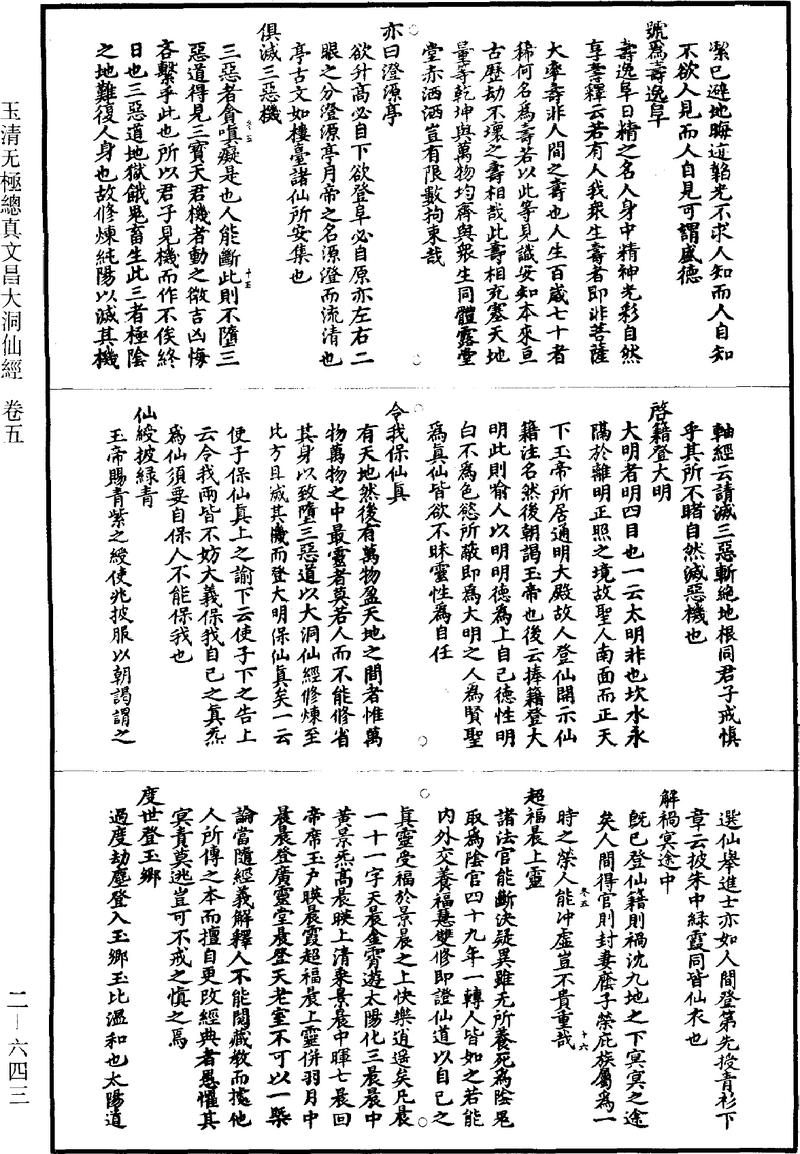 玉清无極總真文昌大洞仙經 卷五
二—六四三
潔已避地晦迹韜光不求人知而人自知
不欲人見而人自見可謂盛德
號為壽逸阜
壽逸阜日精之名人身中精神光彩自然
享壽釋云若有人我衆生壽者即非菩薩
大率壽非人間之壽也人生百歲七十者
稀何名為壽若以此等見識安知本來亘
古歷劫不壞之壽相哉此壽相充塞天地
量等乾坤與萬物均齊與衆生同體露堂
堂赤洒洒豈有限數拘束哉
亦曰澄源亭
欲升高必自下欲登阜必自原亦左右二
眼之分澄源亭月帝之名源澄而流清也
亭古文如樓臺諸仙所安集也
俱滅三惡機
三惡者貪嗔癡是也人能斷此則不墮三
惡道得見三寶天君機者動之微吉凶悔
吝繫乎此也所以君子見機而作不俟終
日也三惡道地獄餓鬼畜生此三者極陰
之地難復人身也故修煉純陽以滅其機
卷五
十五
軸經云請滅三惡斬絶地根同君子戒慎
乎其所不睹自然滅惡機也
啓籍登大明
大明者明四目也一云太明非也坎水永
隔於離明正照之境故聖人南面而正天
下玉帝所居通明大殿故人登仙開示仙
籍注名然後朝謁玉帝也後云捧籍登大
明此則喻人以明明德為上自己德性明
白不為色慾所蔽即為大明之人為賢聖
為真仙皆欲不昧靈性為自任
令我保仙真
有天地然後有萬物盈天地之間者惟萬
物萬物之中最靈者莫若人而不能修省
其身以致墮三惡道以大洞仙經修煉至
此方且滅其機而登大明保仙真矣一云
使子保仙真上之諭下云使子下之告上
云令我兩皆不妨大義保我自己之真炁
為仙須要自保人不能保我也
仙綬披緑青
玉帝賜青紫之綬使兆披服以朝謁謂之
選仙舉進士亦如人間登第先授青衫下
章云披朱中緑霞同皆仙衣也
解禍冥途中
既已登仙籍則禍沈九地之下冥冥之途
矣人間得官則封妻廕子榮庇族屬為一
時之榮人能冲虛豈不貴重哉
卷五
十六
超福晨上靈
諸法官能斷決疑異雖无所養死為陰鬼
取為陰官四十九年一轉人皆如之若能
内外交養福慧雙修即證仙道以自己之
真靈受福於景晨之上快樂逍遥矣凡晨
一十一字天晨金霄遊太陽化三晨晨中
黄景炁高晨映上清乘景晨中暉七晨回
帝席玉户暎晨霞超福晨上靈併羽月中
晨晨登廣靈堂晨登天老室不可以一槩
論當隨經義解釋人不能閱藏教而據他
人所傳之本而擅自更改經典者愚懼其
冥責莫逃豈可不戒之慎之焉
度世登玉鄉
過度劫塵登入玉鄉玉比溫和也太陽道